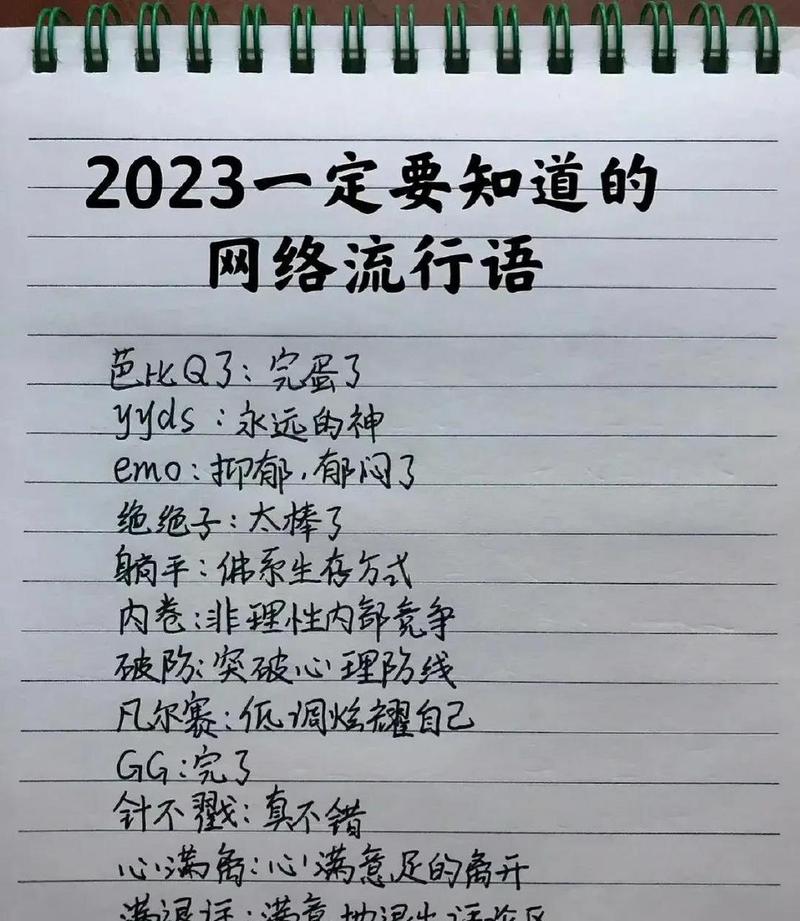 2023一定要知道的
网络流行语
芭比Q了：完蛋了
yyds：永远的神
emo：抑郁，郁闷了
绝绝子：太棒了
躺平：佛系生存方式
内卷：非理性内部竞争
破防：突破心理防线
凡尔赛：低调炫耀自己
GG：完了
针不戳：真不错
心满离：心满意足的离开
满退：满意地退出